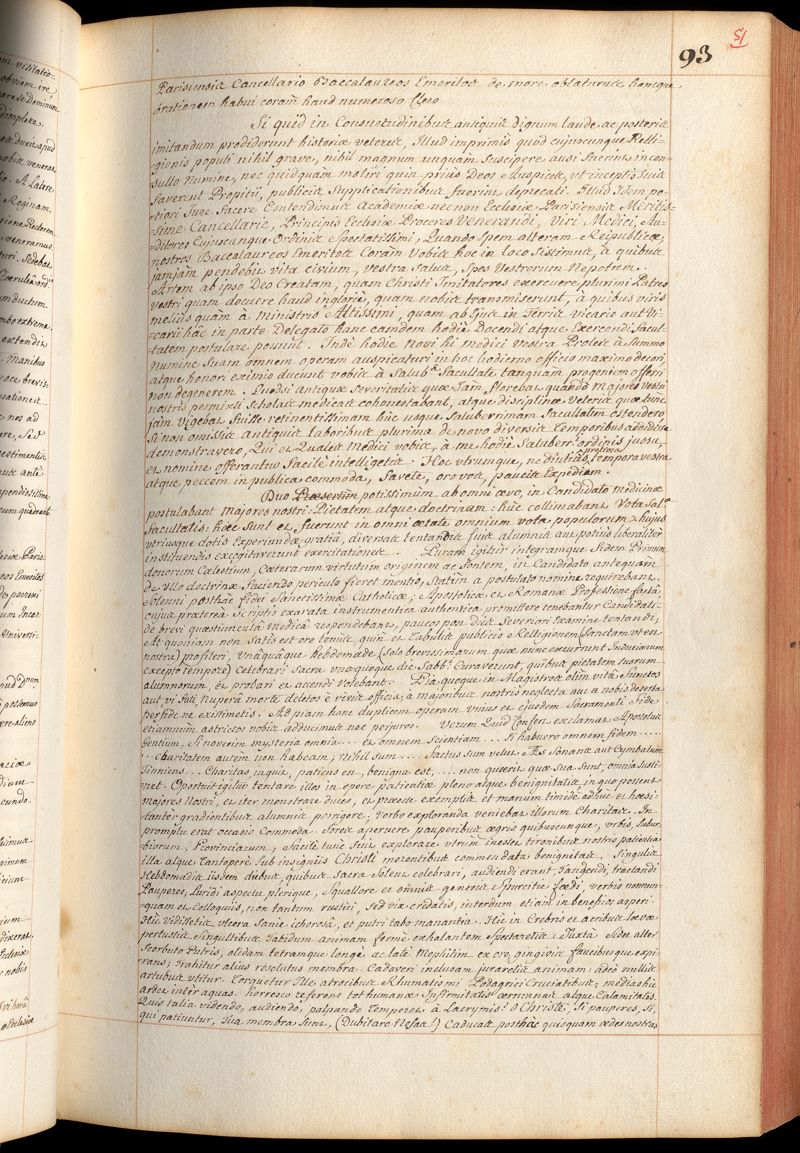 93
51
Parisiensis Cancellario Baccalaureos Emeritos de more oblaturus hancque
orationem habui coram haud numeroso Clero
Si quid in Consuetudinibus antiquis dignum laude ac posteris
imitandum prodiderunt historiæ veteres, Illud imprimis quod cujuscunque Relli-
-gionis populi nihil grave, nihil magnum unquam suscipere ausi fuerint incon-
-sulto Numine, nec quidquam moliri quin prius Deos Auspices, ut inceptis suis
faverent Propitii, publicis supplicationibus fuerint deprecati. Illud idem po-
-tiori Jure facere Contendimus Academiæ nec non Ecclesiæ Parisiensis Meritis-
-sime Cancellarie, Principis Ecclesiæ Proceres Venerandi, Viri Medici, Au-
-ditores Cujuscunque Ordinis Spectatissimi, Quando Spem alteram Reipublicæ,
nostros Baccalaureos Emeritos Coram Vobis hoc in loco Sistimus, à quibus
jamjam pendebit vita civium, vestra Salus, Spes Vestrorum Nepotum.
Artem ab ipso Deo Creatam, quam Christi Imitatores exercuere plurimi Patres
vestri quam docuere haud inglorii, quam nobis transmiserunt, à quibus viris
melius quàm à Ministris Altissimi, quam ab ejus in Terris vicario aut Vi-
-carii hâc in parte Delegato hanc eamdem hodie Docendi atque Exercendi facul-
-tatem postulare possint. Indè hodie novi hi medici vestra Proles à Summo
Numine suam omnem operam auspicaturi in hoc hodierno officio maximo decori
atque honori eximio ducunt vobis à Salub.ª facultate tanquam progeniem offerri
non degenerem. Quodsi antiquæ Severitatis quæ Jam florebat quando majores vestri
nostris permixti Scholas medicas cohonestabant, atque disciplinæ Veteris quæ tunc
jam vigebat fuisse retinentissimam hûc usque Saluberrimam facultatem ostendero,
Si non omissis antiquis laboribus plurima de novo diversis temporibus addidisse
demonstravero, Qui et Quales Medici vobis, à me hodie Saluberr.i ordinis jussu,
et nomine offerantur facile intelligetis. Hoc utrumque, ne diutius pretiosa tempora vestra
atque peccem in publica commoda, favete, oro vos, paucis Expediam.
Duo Præsertim potissimum ab omni ævo, in Candidato medicinæ
postulabant majores nostri: Pietatem atque doctrinam: hûc collimabant Vota Sal.æ
facultatis: hæc sunt et fuerunt in omni ætate omnium vota populorum: hujus
utriusque dotis Experiundæ gratiâ, diversæ tentandis fuis alumnis aut potius liberaliter
instituendis excogitaverunt exercitationes. Puram igitur integramque fidem Primum
donorum Cælestium, cæterarum virtutum originem ac fontem, in Candidato antequàm
de ullo doctrinæ faciendo periculo fieret mentio, Statim a postulato nomine requirebant.
Solemni posthàc fidei Sanctissimæ Catholicæ, Apostolicæ et Romanæ Professione factâ,
cujus præterea scriptis exarata instrumentica authentica promittere tenebantur Candidati:
de brevi quæstiunculâ medicâ respondebant, paucos pòst dies Severiori Examine tentandi,
At quoniam non Satis est ore tenùs, quin et Tabulis publicis Rellligionem sanctam ut est
nostra) profiteri, Unâquâque hebdomade (solo brevissimarum quæ nunc excurrunt Induciarum
excepto tempore) Celebrari sacra unoquoque die Sabb.i Curaverunt, quibus pietatem suorum
alumnorum, et probari et accendi volebant. Pia quoque in Magistros olim vitâ functos
aut, vi fati nuperâ morte deletos è vivis officia, à majoribus nostris neglecta aut a nobis deserta
perfide ne existimetis. Ad piam hanc duplicem operam unius et ejusdem Sacramenti fide
etiamnum astrictos vobis adducimus nec perjuros. Verum Quid Confert exclamat Apostolus
Gentium, Si noverim mysteria omnia ... et omnem Scientiam ... Si habuero omnem fidem ....
.. charitatem autem non habeam; Nihil sum ... factus sum velut Æs Sonans aut Cymbalum
Tinniens ... Charitas, inquit, patiens est, benigna est, .... non quærit quæ Sua sunt, omnia susti-
net. Oportuit igitur tentare illos in opere patientiæ pleno atque benignitatis, in quo possent
majores Nostri, et iter monstrare duces, et præesse exemplis, et manum timidè adhuc et hæsi-
-tantèr gradientibus alumnis porrigere; verbo exploranda veniebat illorum Charitas. In
promptu erat occasio Commoda. fores aperuere pauperibus ægris quibuscunque, urbis, Subur-
-biorum, Provinciarum; facile tunc fuit explorare utrum inesset tironibus nostris patientia
illa atque tantoperè sub insigniis Christi merentibus commendata benignitas. Singulis
Hebdomadis iisdem diebus, quibus sacra solent celebrari, audiendi erant, tangendi, tractandi
Pauperes, Luridi aspectu plerique, Squallore et omnis generis Spurcitie fœdi, verbis nonnun-
-quam et Colloquiis, non tantum rustici, sed vix creditis, interdum etiam in beneficos asperi.
Hic vidissetis ulcera Sanie ichorosâ, et putri tabo manantia. Hic in Crebris et acribus locos
pertussis Singultibus Tabidum animam fermè exhalantem Spectaretis: Juxta sedet alter
Scorbuto Putris, olidam tetramque longè ac latè Mephitim ex ore, gingivis faucibusque expi-
rans; trahitur alius resolutus membra. Cadaveri inclusam juraretis animam: adeò nullis
artubus utitur. Torquetur Ille atrocibus Rhumatismi Podagræi Cruciatibus; mediis hic
ardet intèr aquas. horresco referens tot humanæ Infirmitatis ærumnas atque Calamitates.
Quis talia videndo, audiendo, palpando Temperet à Lacrymis? O Christe, Si pauperes, Si,
qui patiuntur, Tua membra sunt, (Dubitare Nefas!) Caducas posthàc quisquam ædes nostras